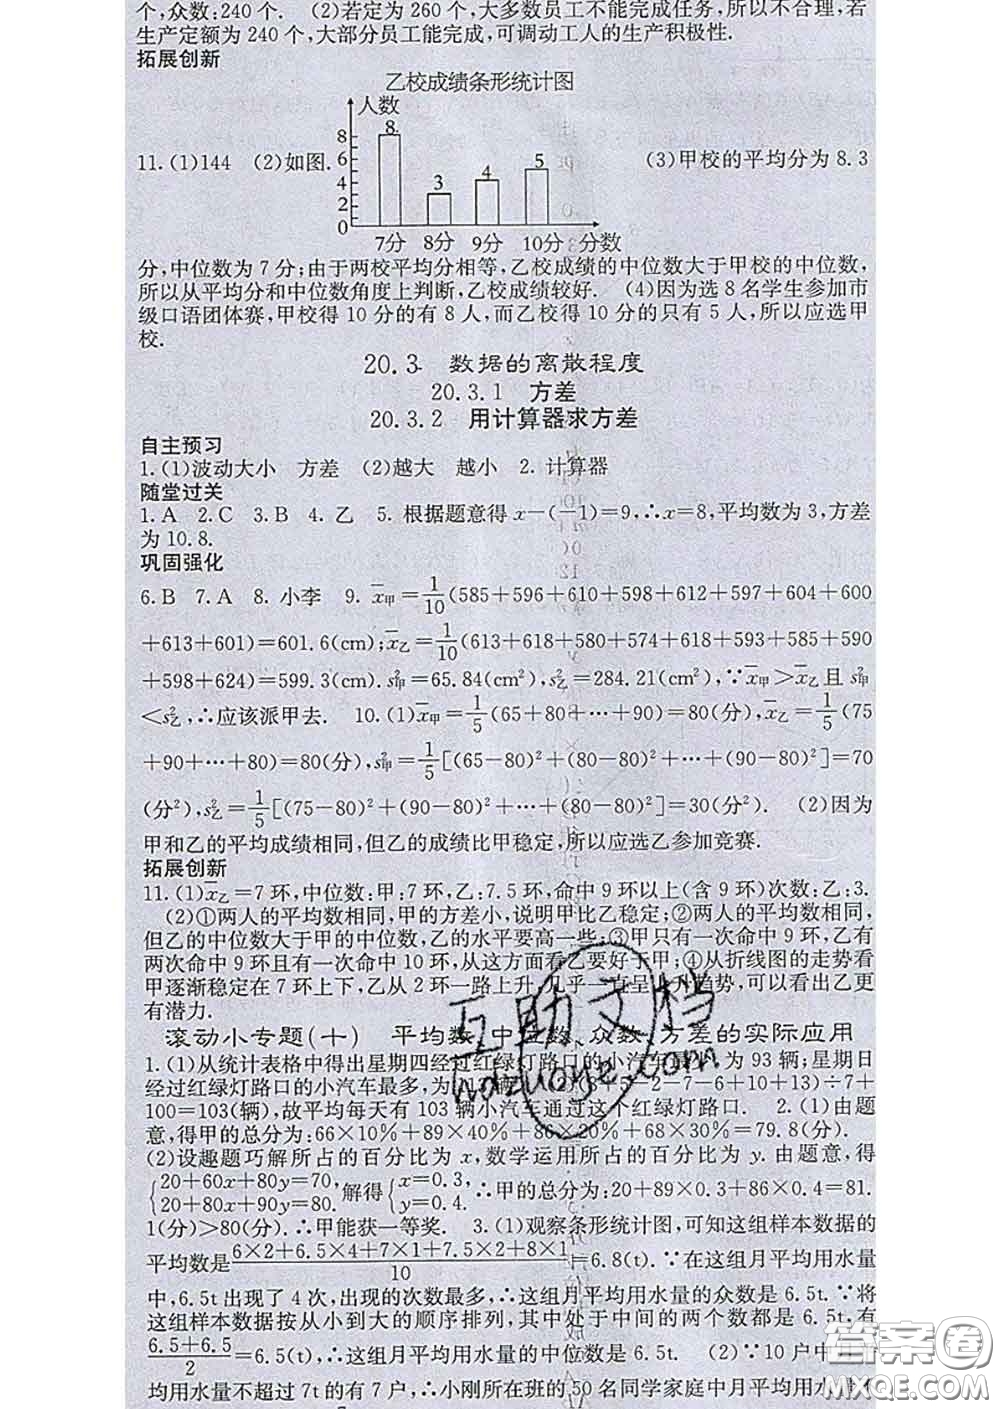 个,众数:240个. (2)若定为260个,大多数员工不能完成任务,所以不合理,若
生产定额为240个,大部分员工能完成,可调动工人的生产积极性.
拓展创新
乙校成绩条形统计图
人数
8
6
4
2
0
8
3
4
5
7分 8分 9分 10分 分数
11.(1)144 (2)如图. (3)甲校的平均分为8.3
分,中位数为7分;由于两校平均分相等,乙校成绩的中位数大于甲校的中位数,
所以从平均分和中位数角度上判断,乙校成绩较好. (4)因为选8名学生参加市
级口语团体赛,甲校得10分的有8人,而乙校得10分的只有5人,所以应选甲
校.
20.3 数据的离散程度
20.3.1 方差
20.3.2 用计算器求方差
自主预习
1.(1)波动大小 方差 (2)越大 越小 2. 计算器
随堂过关
1.A 2.C 3.B 4. 乙 5. 根据题意得x-(-1)=9,∴x=8,平均数为3,方差
为10.8.
巩固强化
6.B 7.A 8. 小李 9. x̄甲=1/10(585+596+610+598+612+597+604+600
+613+601)=601.6(cm);x̄乙=1/10(613+618+580+574+618+593+585+590
+598+624)=599.3(cm).s²甲=65.84(cm²),s²乙=284.21(cm²),∵x̄甲>x̄乙且s²甲
<s²乙,∴应该派甲去. 10.(1)x̄甲=1/5(65+80+…+90)=80(分),x̄乙=1/5(75
+90+…+80)=80(分),s²甲=1/5[(65-80)²+(80-80)²+…+(90-80)²]=70
(分²),s²乙=1/5[(75-80)²+(90-80)²+…+(80-80)²]=30(分²). (2)因为
甲和乙的平均成绩相同,但乙的成绩比甲稳定,所以应选乙参加竞赛.
拓展创新
11.(1)x̄乙=7环,中位数:甲:7环,乙:7.5环,命中9环以上(含9环)次数:乙:3.
(2)①两人的平均数相同,甲的方差小,说明甲比乙稳定;②两人的平均数相同,
但乙的中位数大于甲的中位数,乙的水平要高一些;③甲只有一次命中9环,乙有
两次命中9环且有一次命中10环,从这方面看乙要好于甲;④从折线图的走势看
甲逐渐稳定在7环上下,乙从2环一路上升,几乎一直呈上升趋势,可以看出乙更
有潜力.
滚动小专题(十) 平均数、中位数、众数、方差的实际应用
1.(1)从统计表格中得出星期四经过红绿灯路口的小汽车最 为93辆;星期日
经过红绿灯路口的小汽车最多,为113辆. 5-2-7-6+10+13)÷7+
100=103(辆),故平均每天有103辆小汽车通过这个红绿灯路口. 2.(1)由题
意,得甲的总分为:66×10%+89×40%+86×20%+68×30%=79.8(分).
(2)设趣题巧解所占的百分比为x,数学运用所占的百分比为y.由题意,得
{20+60x+80y=70, 20+80x+80y=90. 解得{x=0.3, y=0.4. ∴甲的总分为:20+89×0.3+86×0.4=81.
1(分)>80(分).∴甲能获一等奖. 3.(1)观察条形统计图,可知这组样本数据的
平均数是(6×2+6.5×4+7×1+7.5×2+8×1)/10=6.8(t).∵在这组月平均用水量
中,6.5t出现了4次,出现的次数最多,∴这组月平均用水量的众数是6.5t.∵将
这组样本数据按从小到大的顺序排列,其中处于中间的两个数都是6.5t,有
(6.5+6.5)/2=6.5(t),∴这组月平均用水量的中位数是6.5t. (2)∵10户中
均用水量不超过7t的有7户,∴小刚所在班的50名同学家庭中月平均用水
互助文档
hdzuoye.com
答案圈
MXQE.COM